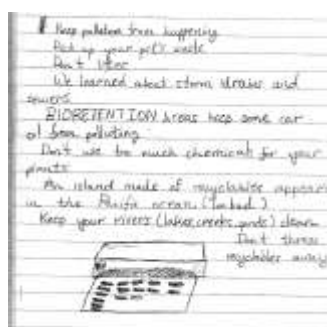 Keep pollution from happening
Pick up your pet's waste
Don't litter
We learned about storm drains and
sewers
BIORETENTION Areas keep some car
oil from polluting
Don't use to much chemicals for your
plants
An island made of recyclables appears
in the Pacific ocean
Keep your rivers (lakes, creeks, ponds) clean
Don't throw
recyclables away